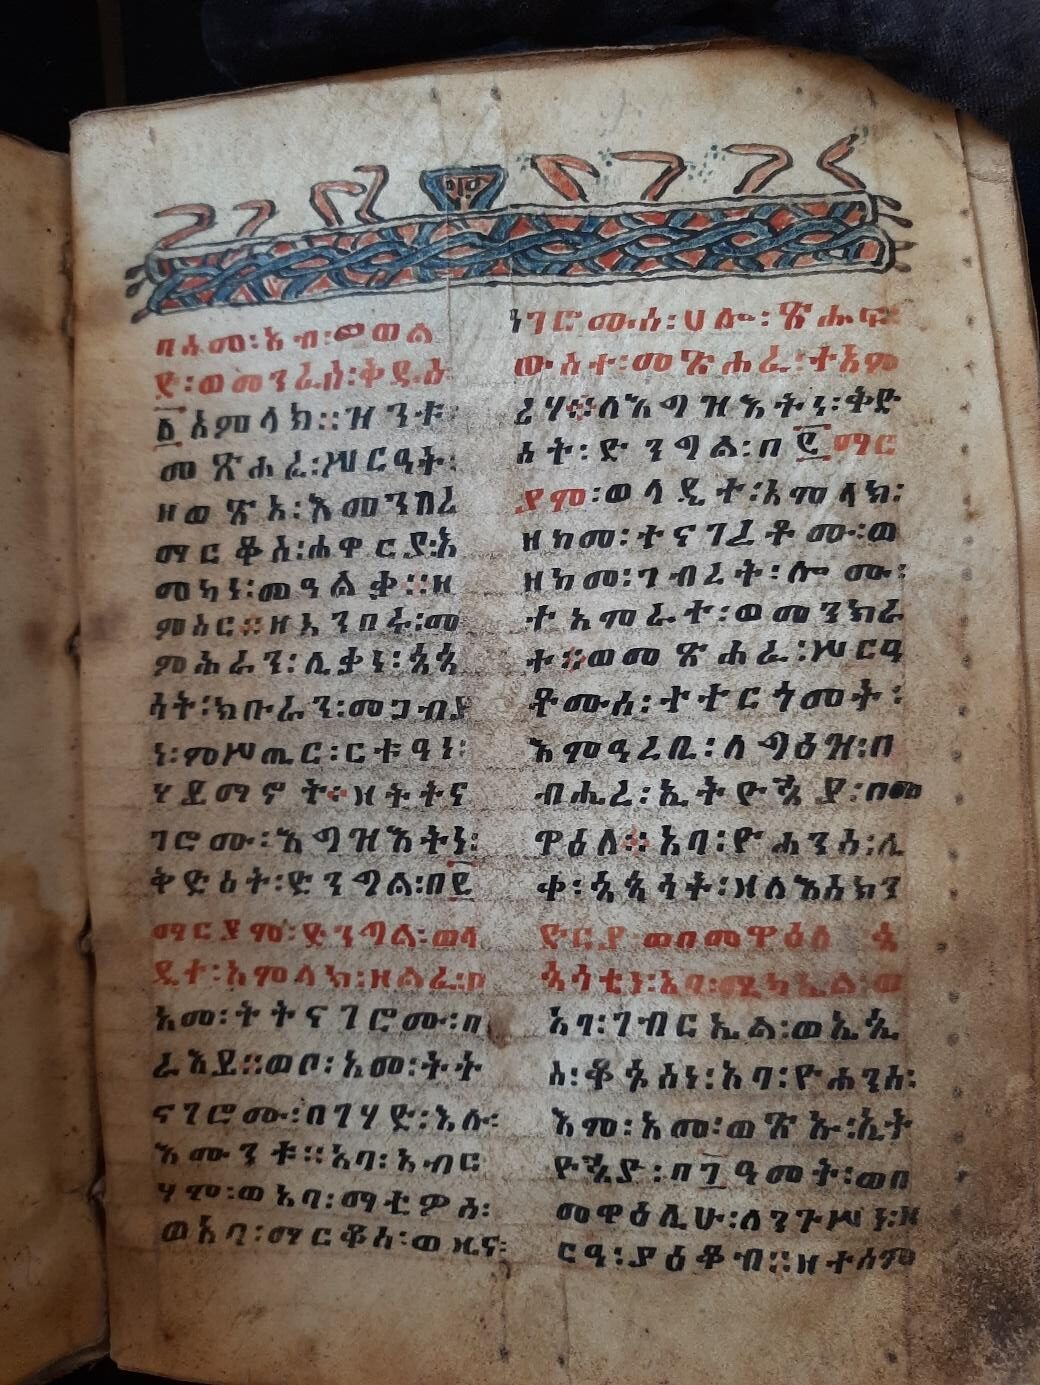 በስመ፡አብ፡ወወል
ድ፡ወመንፈስ፡ቅዱስ
፩አምላክ።ዝንቱ
መጽሐፈ፡ሥርዓት፡
ዘወጽአ፡እመንበረ
ማርቆስ፡ሐዋርያ፡እ
መካነ፡
ምስር።ዘአንበሩ፡መ
ምሕራን፡ሊቃነ፡ጳጳ
ሳት፡ክቡራን፡መጋብያ
ነ፡ምሥጢር፡ርቱዓነ፡
ሃይማኖት፡ዘትትና
ገሮሙ፡እግዝእትነ፡
ቅድስት፡ድንግል፡በ፪
ማርያም፡ድንግል፡ወላ
ዲተ፡አምላክ፡ዘልፈ፡በ
አመ፡ትትናገሮሙ፡በ
ራእይ።ወቦ፡አመ፡ትት
ናገሮሙ፡በገሃድ፡እሉ፡
እሙንቱ።አባ፡አብር
ሃም፡ወአባ፡ማቴዎስ፡
ወአባ፡ማርቆስ፡ወዜና፡
ነገሮሙሰ፡ህሎ፡ጽሑፍ፡
ውስተ፡መጽሐፈ፡ተአም
ሪሃ።ለእግዝእትነ፡ቅድ
ስት፡ድንግል፡በ፪ማር
ያም፡ወላዲተ፡አምላክ፡
ዘከመ፡ተናገረቶሙ፡ወ
ዘከመ፡ገብረት፡ሎሙ፡
ተአምራተ፡ወመንክራ
ተ።ወመጽሐፈ፡ሥርዓ
ቶሙሰ፡ተተርጎመት፡
እምዓረቢ፡ለግዕዝ፡በ
ብሔረ፡ኢትዮጵያ፡በመ
ዋዕለ።አባ፡ዮሐንስ፡ሊ
ቀ፡ጳጳሳት፡ዘለእስክን
ድርያ፡ወበመዋዕለ ጳ
ጳሳቲነ፡አባ፡ሚካኤል፡ወ
አባ፡ገብርኤል፡ወኤጲ
ስ፡ቆጶስነ፡አባ፡ዮሐንስ፡
እም፡አመ፡ወጽኡ፡ኢት
ዮጵያ፡በ፫ዓመት፡ወበ
መዋዕሊሁ፡ለንጉሥነ፡ዘ
ርዓ፡ያዕቆብ።ዘተሰም